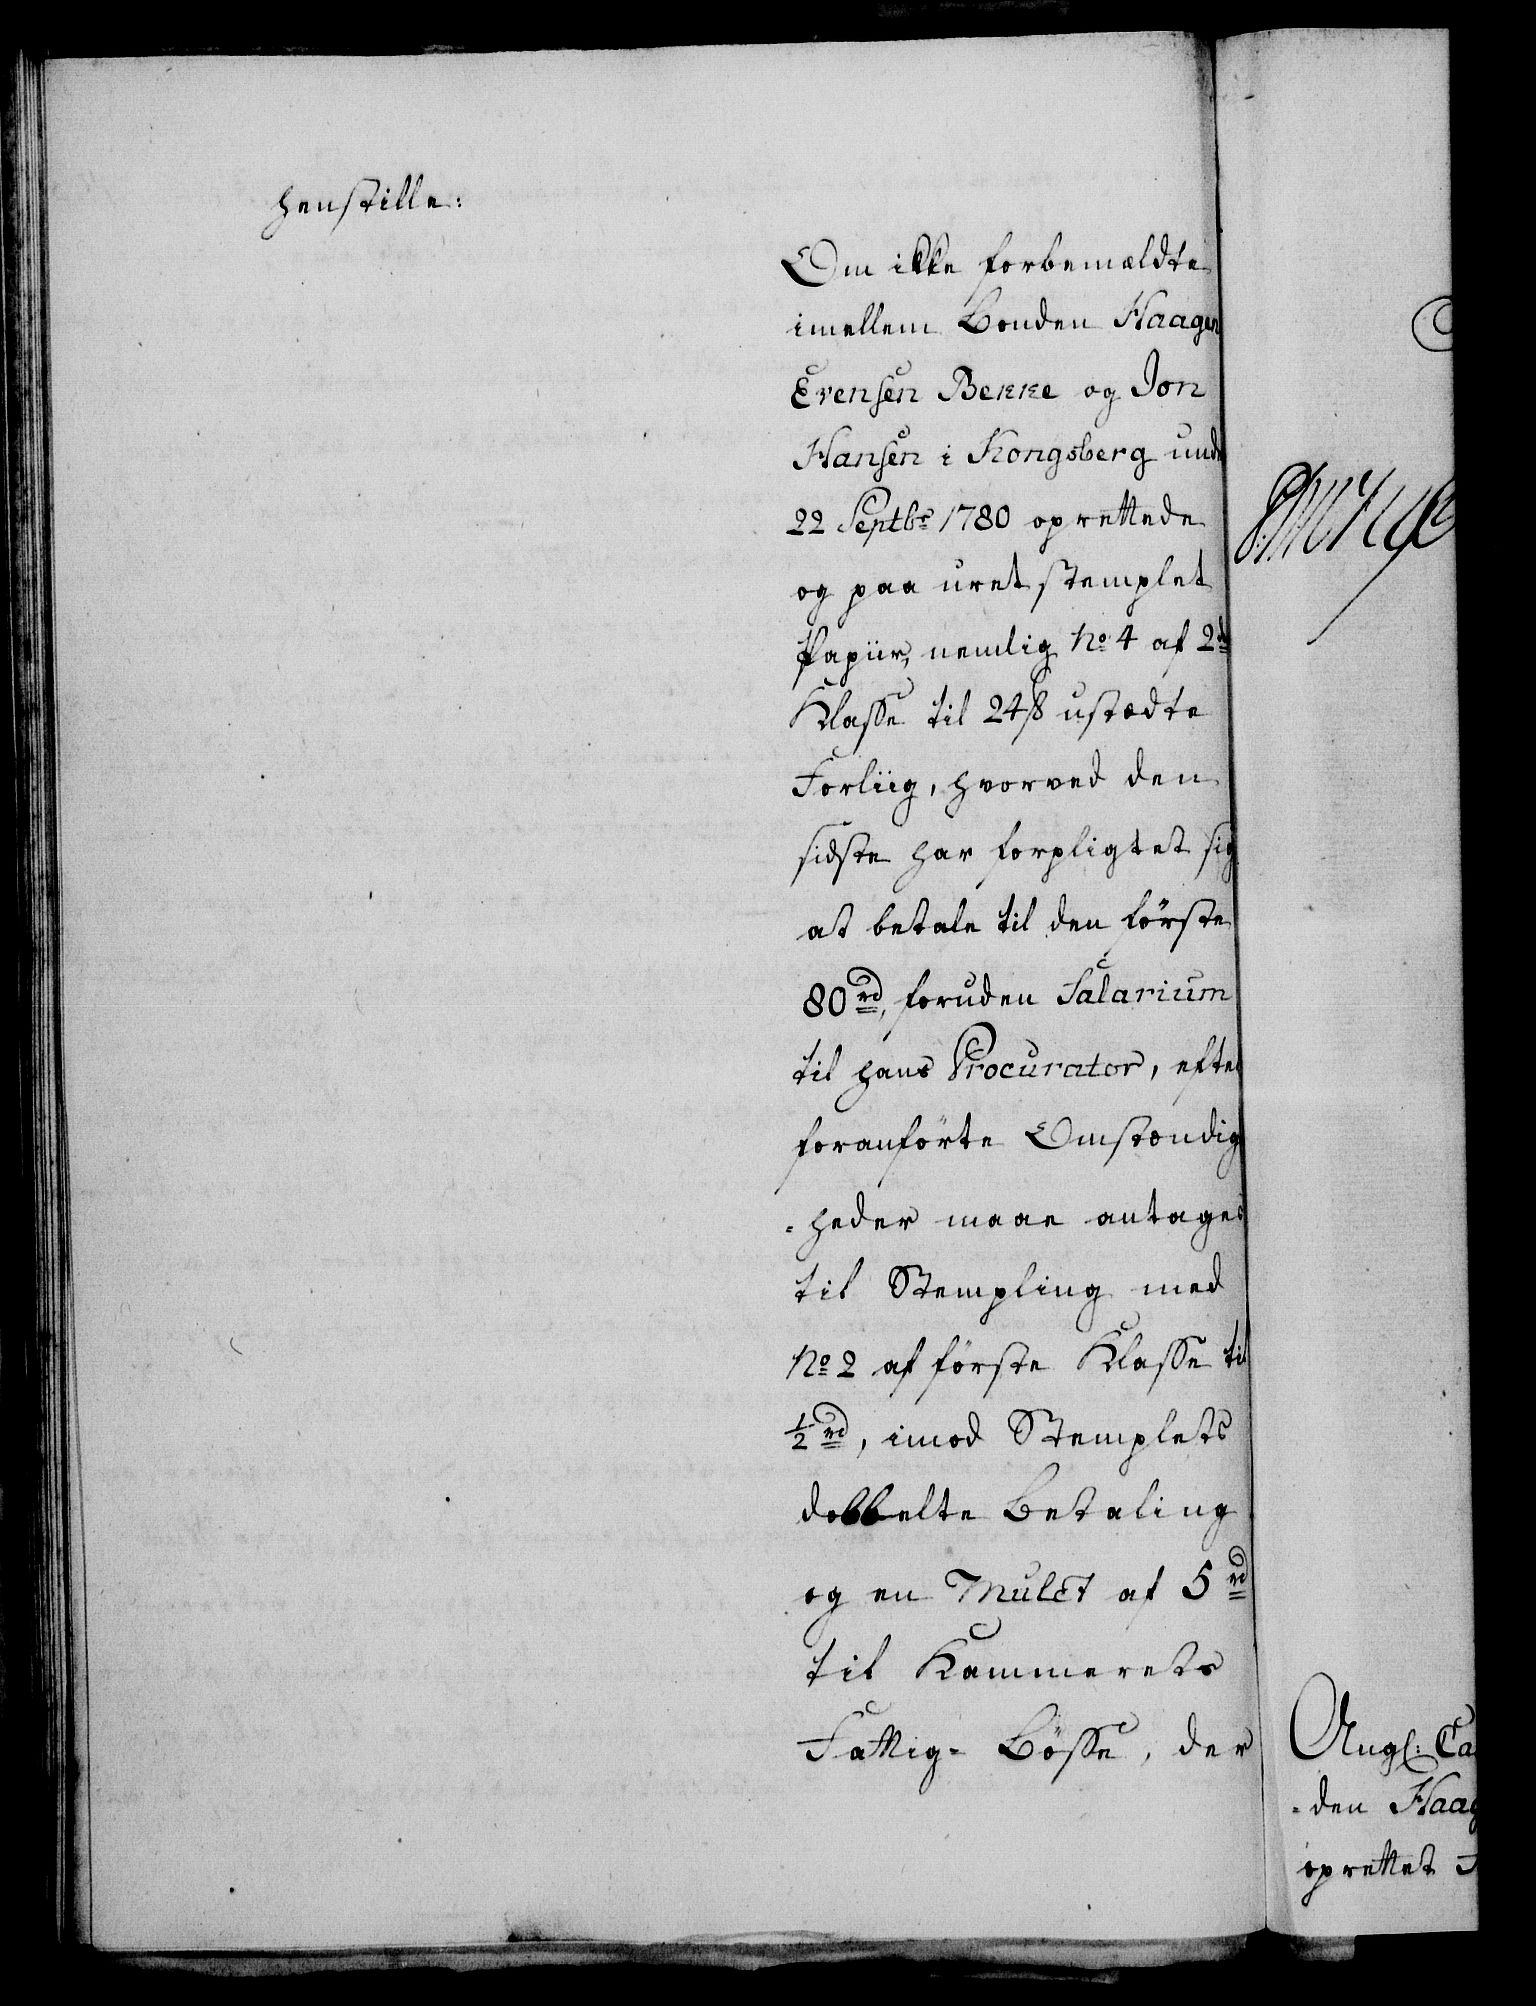 henstille:
Om ikke forbemældte
imellem Bonden Haagen
Evensen Bekke og Jon
Hansen i Kongsberg unde
22 Septbr 1780 oprettede
og paa uret stemplet
Papiir, nemlig No 4 af 2de
Klasse til 24 ß ustædte
Forliig, hvorved den
sidste har forpligtet sig
at betale til den förste
80 rd, foruden Salarium
til hans Procurator, efter
foranförte Omstændig
-heder maae antages
til Stempling med
No 2 af förste Klasse til
1/2 rd, imod Stemplets
dobbelte Betaling
og en Mulct af 5 rd
til Kammerets
Fattig- Bösse, der
Angl: Ca
-den Haag
oprettet F